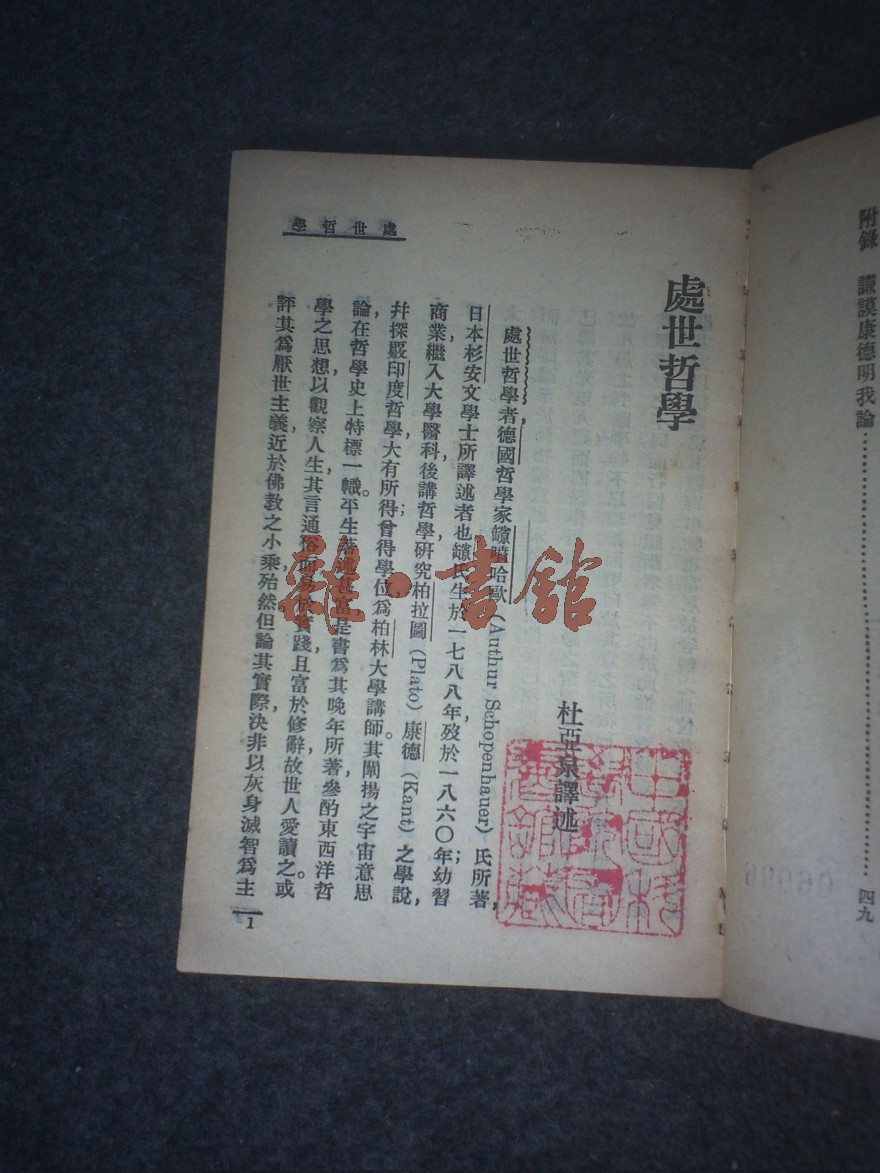 附錄 謙謨康德明我論……四九
處世哲學
處世哲學
杜亞泉譯述
處世哲學者，德國哲學家
哈歐（Authur Schopenhauer）氏所著，
日本杉安文學士所譯述者也
氏生於一七八八年歿於一八六〇年；幼習
商業，繼入大學醫科，後講哲學，研究柏拉圖（Plato）康德（Kant）之學說，
幷探嚴印度哲學，大有所得；曾得學位，爲柏林大學講師。其闡揚之宇宙意思
論，在哲學史上特標一幟。平生著述甚富，是書爲其晚年所著，參酌東西洋哲
學之思想，以觀察人生，其言通俗而易於實踐，且富於修辭，故世人愛讀之。或
評其爲厭世主義，近於佛教之小乘，殆然，但論其實際，決非以灰身滅智爲主
1
雜·書館
06096